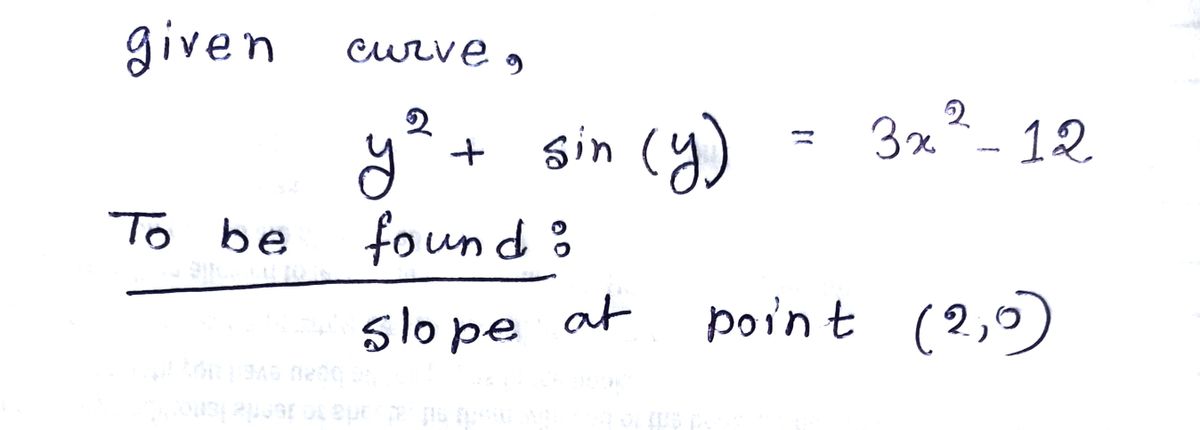 given curve,
y² + sin (y) = 3x² - 12
To be found :
slope at point (2,0)